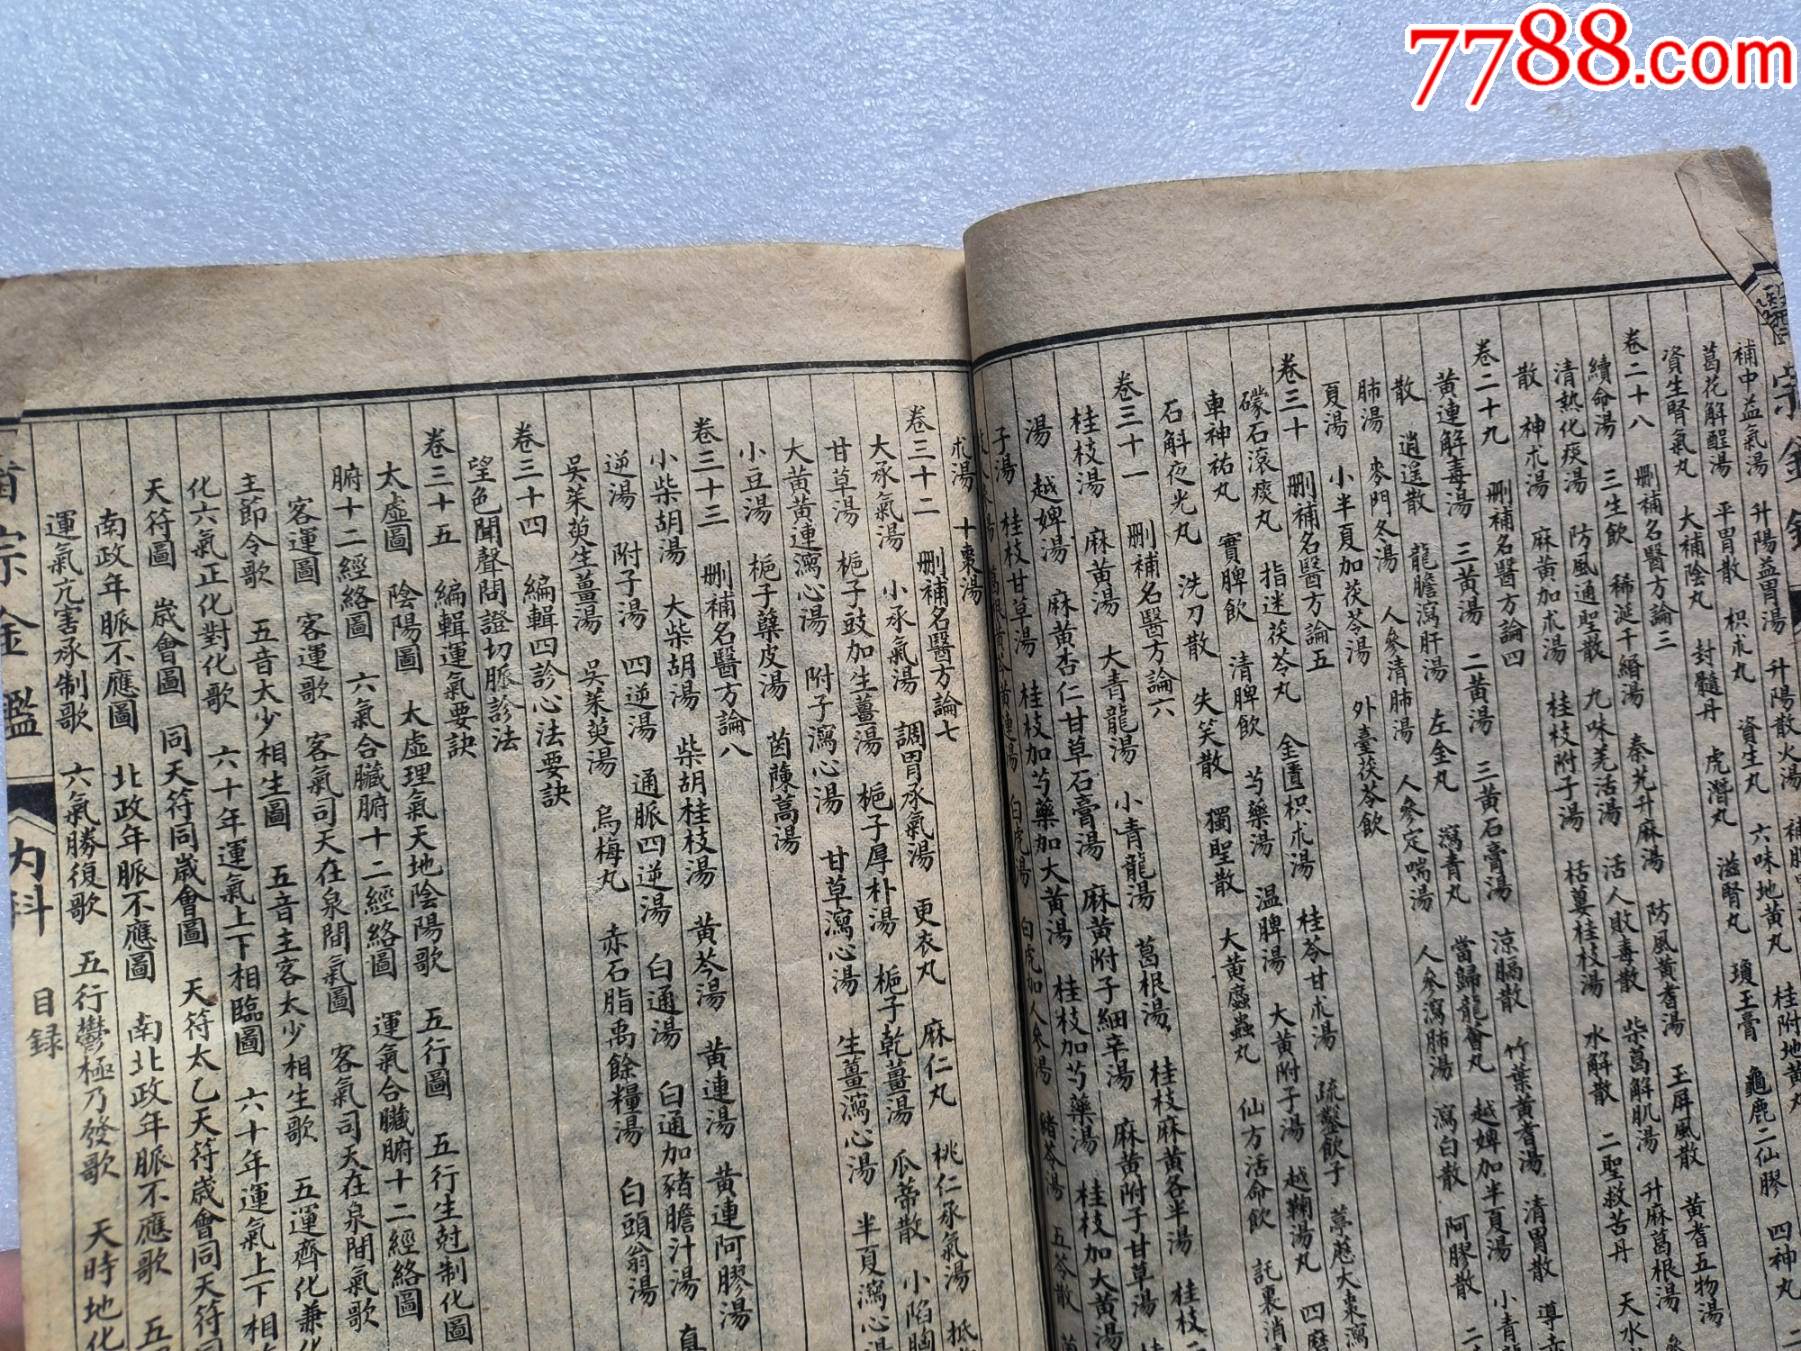 7788.com
補中益氣湯 升陽益胃湯 升陽散火湯 補脾
葛花解酲湯 平胃散 枳朮丸 資生丸 六味地黃丸 桂附地黃丸
資生腎氣丸 大補陰丸 封髓丹 虎潛丸 滋腎丸 瓊玉膏 龜鹿二仙膠 四神丸
卷二十八 刪補名醫方論三
續命湯 三生飲 稀涎千緡湯 秦艽升麻湯 防風黃耆湯 玉屏風散 黃耆五物湯
清熱化痰湯 防風通聖散 九味羌活湯 活人敗毒散 柴葛解肌湯 升麻葛根湯
散 神朮湯 麻黃加朮湯 桂枝附子湯 栝蔞桂枝湯 水解散 二聖救苦丹 天水
卷二十九 刪補名醫方論四
黃連解毒湯 三黃湯 二黃湯 三黃石膏湯 涼膈散 竹葉黃耆湯 清胃散 導赤
散 逍遥散 龍膽瀉肝湯 左金丸 瀉青丸 當歸龍薈丸 越婢加半夏湯 小青龍
肺湯 麥門冬湯 人參清肺湯 人參定喘湯 人參瀉肺湯 瀉白散 阿膠散
夏湯 小半夏加茯苓湯 外臺茯苓飲
卷三十 刪補名醫方論五
礞石滚痰丸 指迷茯苓丸 金匱枳朮湯 桂苓甘朮湯 疏鑿飲子 葶藶大棗瀉
車神祐丸 實脾飲 清脾飲 芍藥湯 溫脾湯 大黃附子湯 越鞠湯丸 四磨
石斛夜光丸 洗刀散 失笑散 獨聖散 大黃䗪蟲丸 仙方活命飲 託裏消
卷三十一 刪補名醫方論六
桂枝湯 麻黃湯 大青龍湯 小青龍湯 葛根湯 桂枝麻黃各半湯 桂枝二
湯 越婢湯 麻黃杏仁甘草石膏湯 麻黃附子細辛湯 麻黃附子甘草湯
子湯 桂枝甘草湯 桂枝加芍藥加大黃湯 桂枝加芍藥湯 桂枝加大黃湯
葛根黃芩黃連湯 白虎湯 白虎加人參湯 豬苓湯 五苓散
朮湯 十棗湯
卷三十二 刪補名醫方論七
大承氣湯 小承氣湯 調胃承氣湯 更衣丸 麻仁丸 桃仁承氣湯 抵
甘草湯 梔子豉加生薑湯 梔子厚朴湯 梔子乾薑湯 瓜蒂散 小陷胸
大黃黃連瀉心湯 附子瀉心湯 甘草瀉心湯 生薑瀉心湯 半夏瀉心湯
小豆湯 梔子蘖皮湯 茵蔯蒿湯
卷三十三 刪補名醫方論八
小柴胡湯 大柴胡湯 柴胡桂枝湯 黃芩湯 黃連湯 黃連阿膠湯
逆湯 附子湯 四逆湯 通脈四逆湯 白通湯 白通加豬膽汁湯 真
吳茱萸生薑湯 吳茱萸湯 烏梅丸 赤石脂禹餘糧湯 白頭翁湯
卷三十四 編輯四診心法要訣
望色聞聲問證切脈診法
卷三十五 編輯運氣要訣
太虛圖 陰陽圖 太虛理氣天地陰陽歌 五行圖 五行生尅制化圖
腑十二經絡圖 六氣合臟腑十二經絡圖 運氣合臟腑十二經絡圖
客運圖 客運歌 客氣司天在泉間氣圖 客氣司天在泉間氣歌
主節令歌 五音太少相生圖 五音主客太少相生歌 五運齊化兼化
化六氣正化對化歌 六十年運氣上下相臨圖 六十年運氣上下相
天符圖 歲會圖 同天符同歲會圖 天符太乙天符歲會同天符同
南政年脈不應圖 北政年脈不應圖 南北政年脈不應歌 五
運氣亢害承制歌 六氣勝復歌 五行鬱極乃發歌 天時地化
宗金鑑 內科 目錄